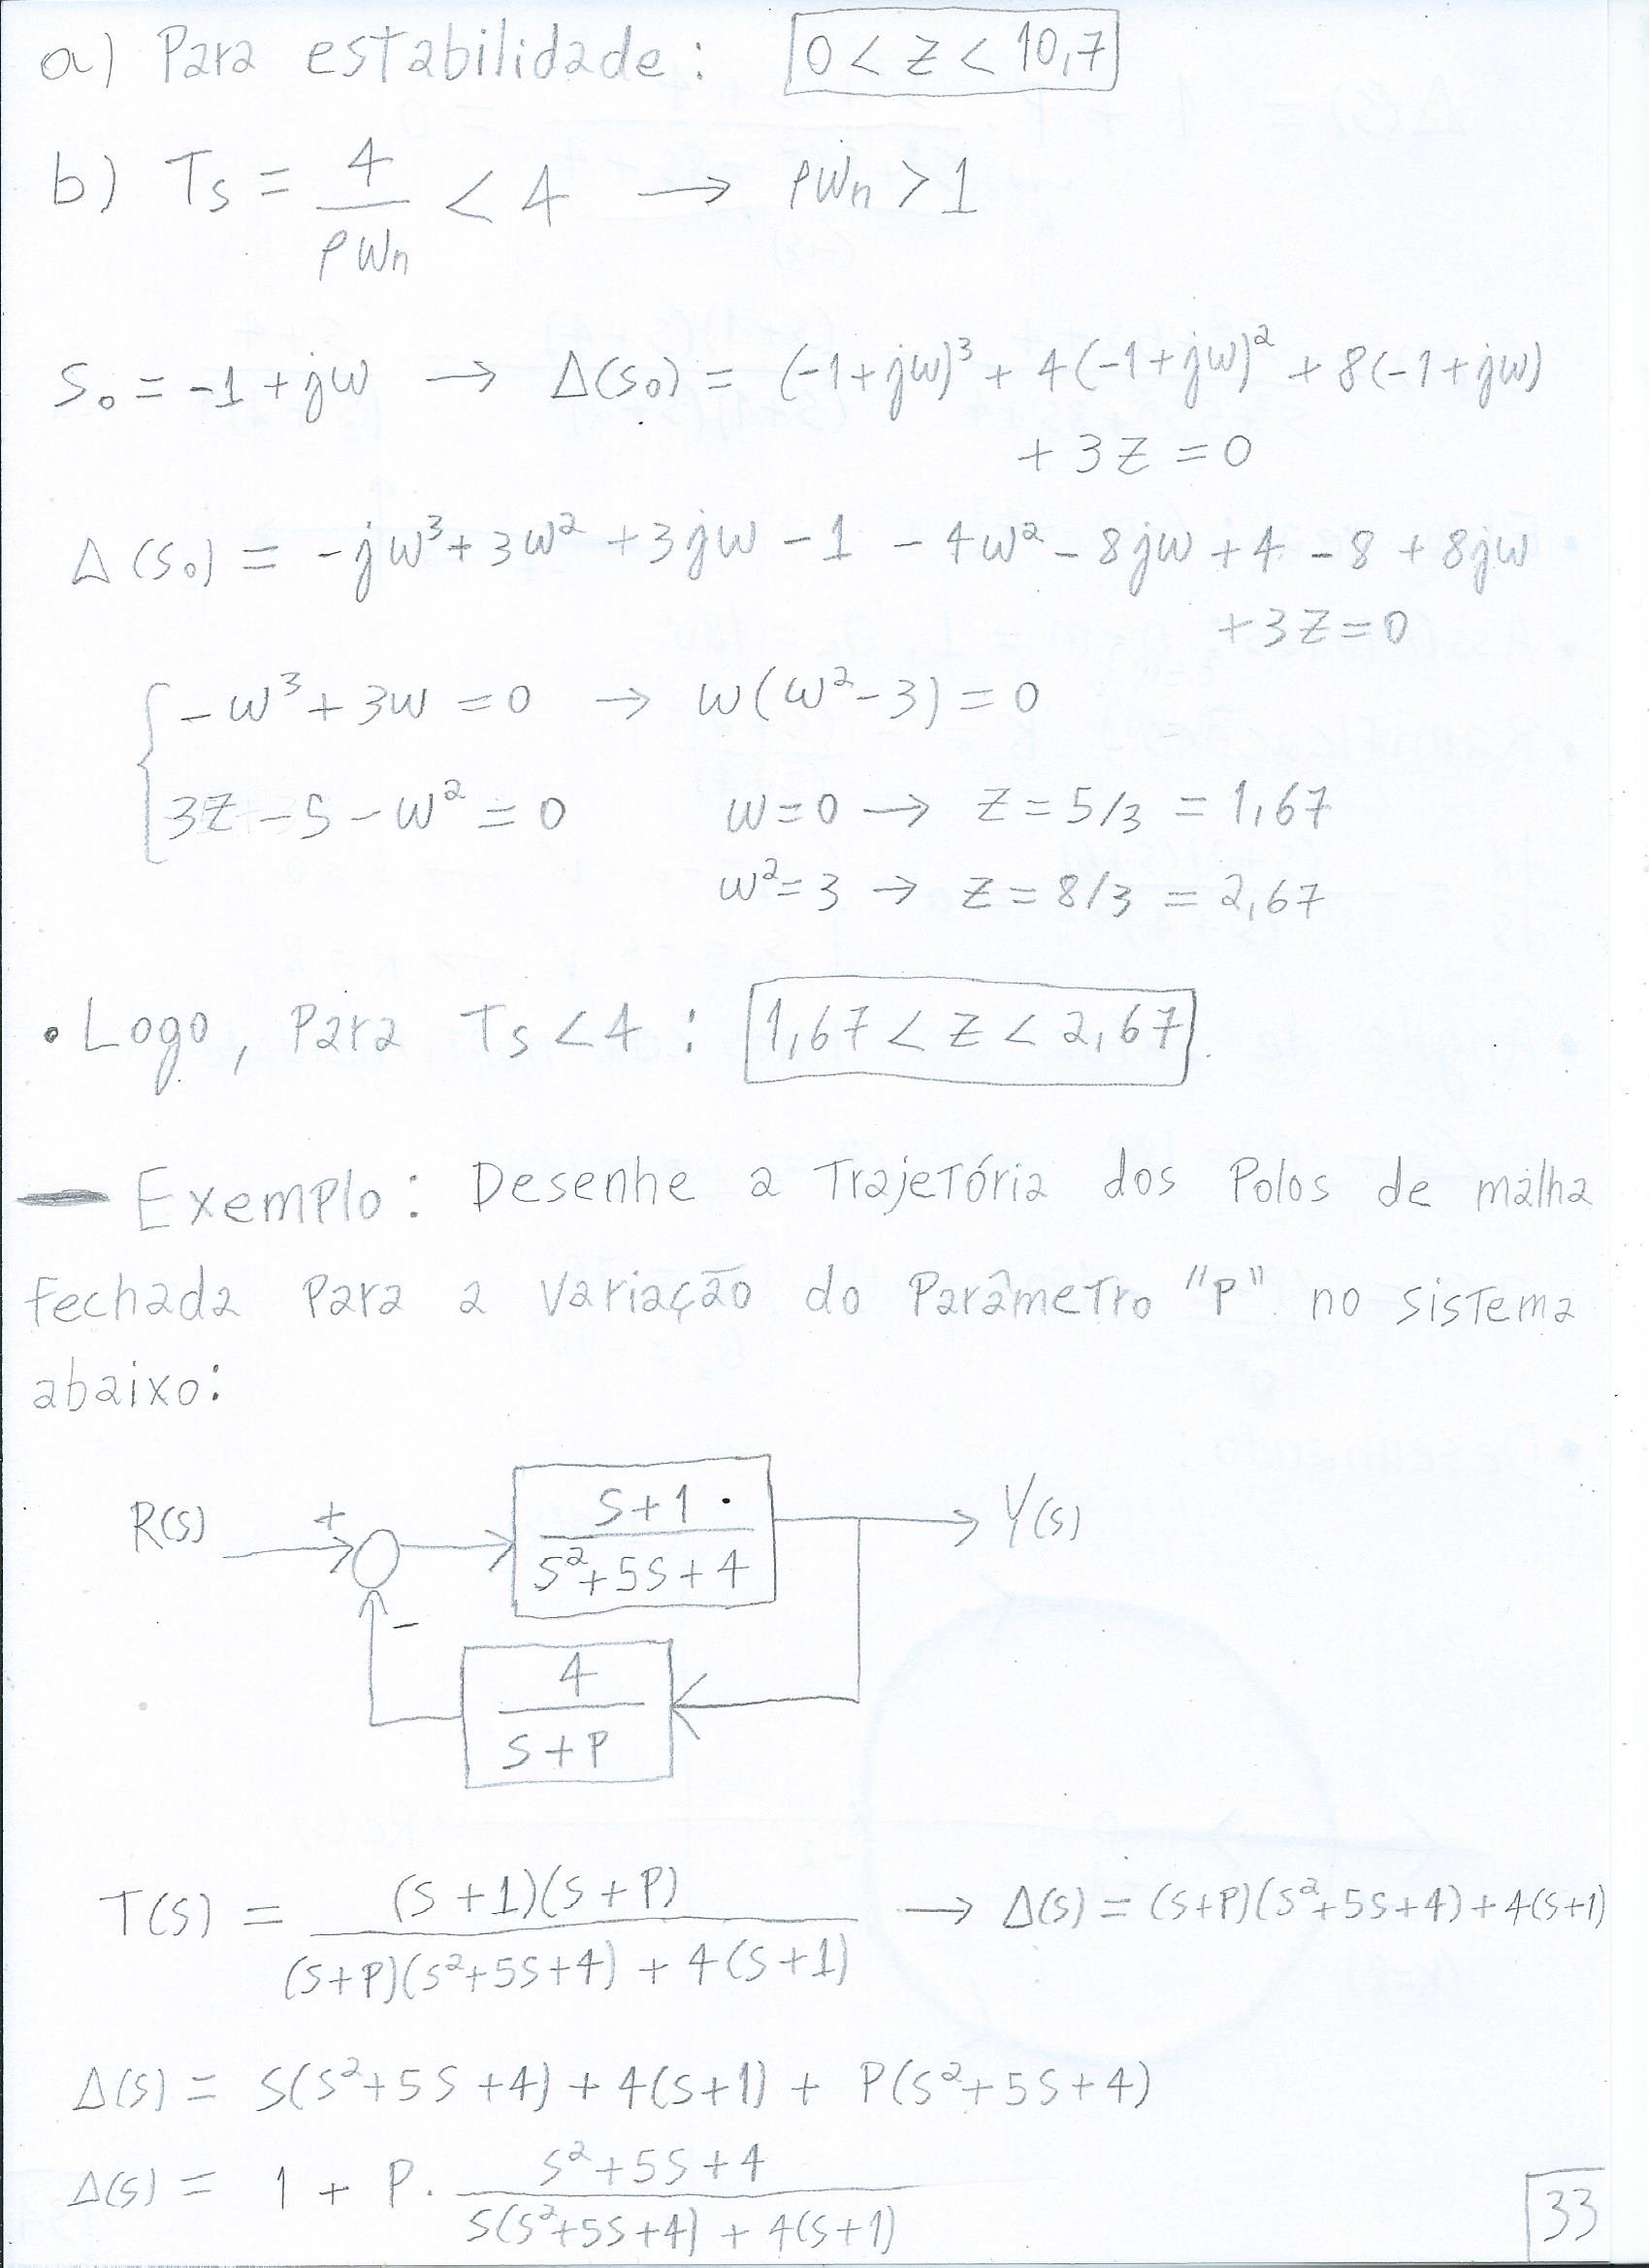 a) Para estabilidade: 0 < Z < 10,7
b) Ts = 4/(ρWn) < 4 → ρWn > 1
S₀ = -1 + jω → Δ(S₀) = (-1+jω)³ + 4(-1+jω)² + 8(-1+jω)
+ 3Z = 0
Δ(S₀) = -jω³ + 3ω² + 3jω - 1 - 4ω² - 8jω + 4 - 8 + 8jω
+ 3Z = 0
-ω³ + 3ω = 0 → ω(ω² - 3) = 0
3Z - 5 - ω² = 0 ω = 0 → Z = 5/3 = 1,67
ω² = 3 → Z = 8/3 = 2,67
• Logo, Para Ts < 4 : 1,67 < Z < 2,67.
— Exemplo: Desenhe a Trajetória dos Polos de malha
fechada Para a Variação do Parâmetro "P" no sistema
abaixo:
R(s) + (S+1)/(S²+5S+4) Y(s)
-
4/(S+P)
T(s) = (S+1)(S+P)/((S+P)(S²+5S+4) + 4(S+1)) → Δ(s) = (S+P)(S²+5S+4) + 4(S+1)
Δ(s) = S(S²+5S+4) + 4(S+1) + P(S²+5S+4)
Δ(s) = 1 + P. (S²+5S+4)/(S(S²+5S+4) + 4(S+1))
33